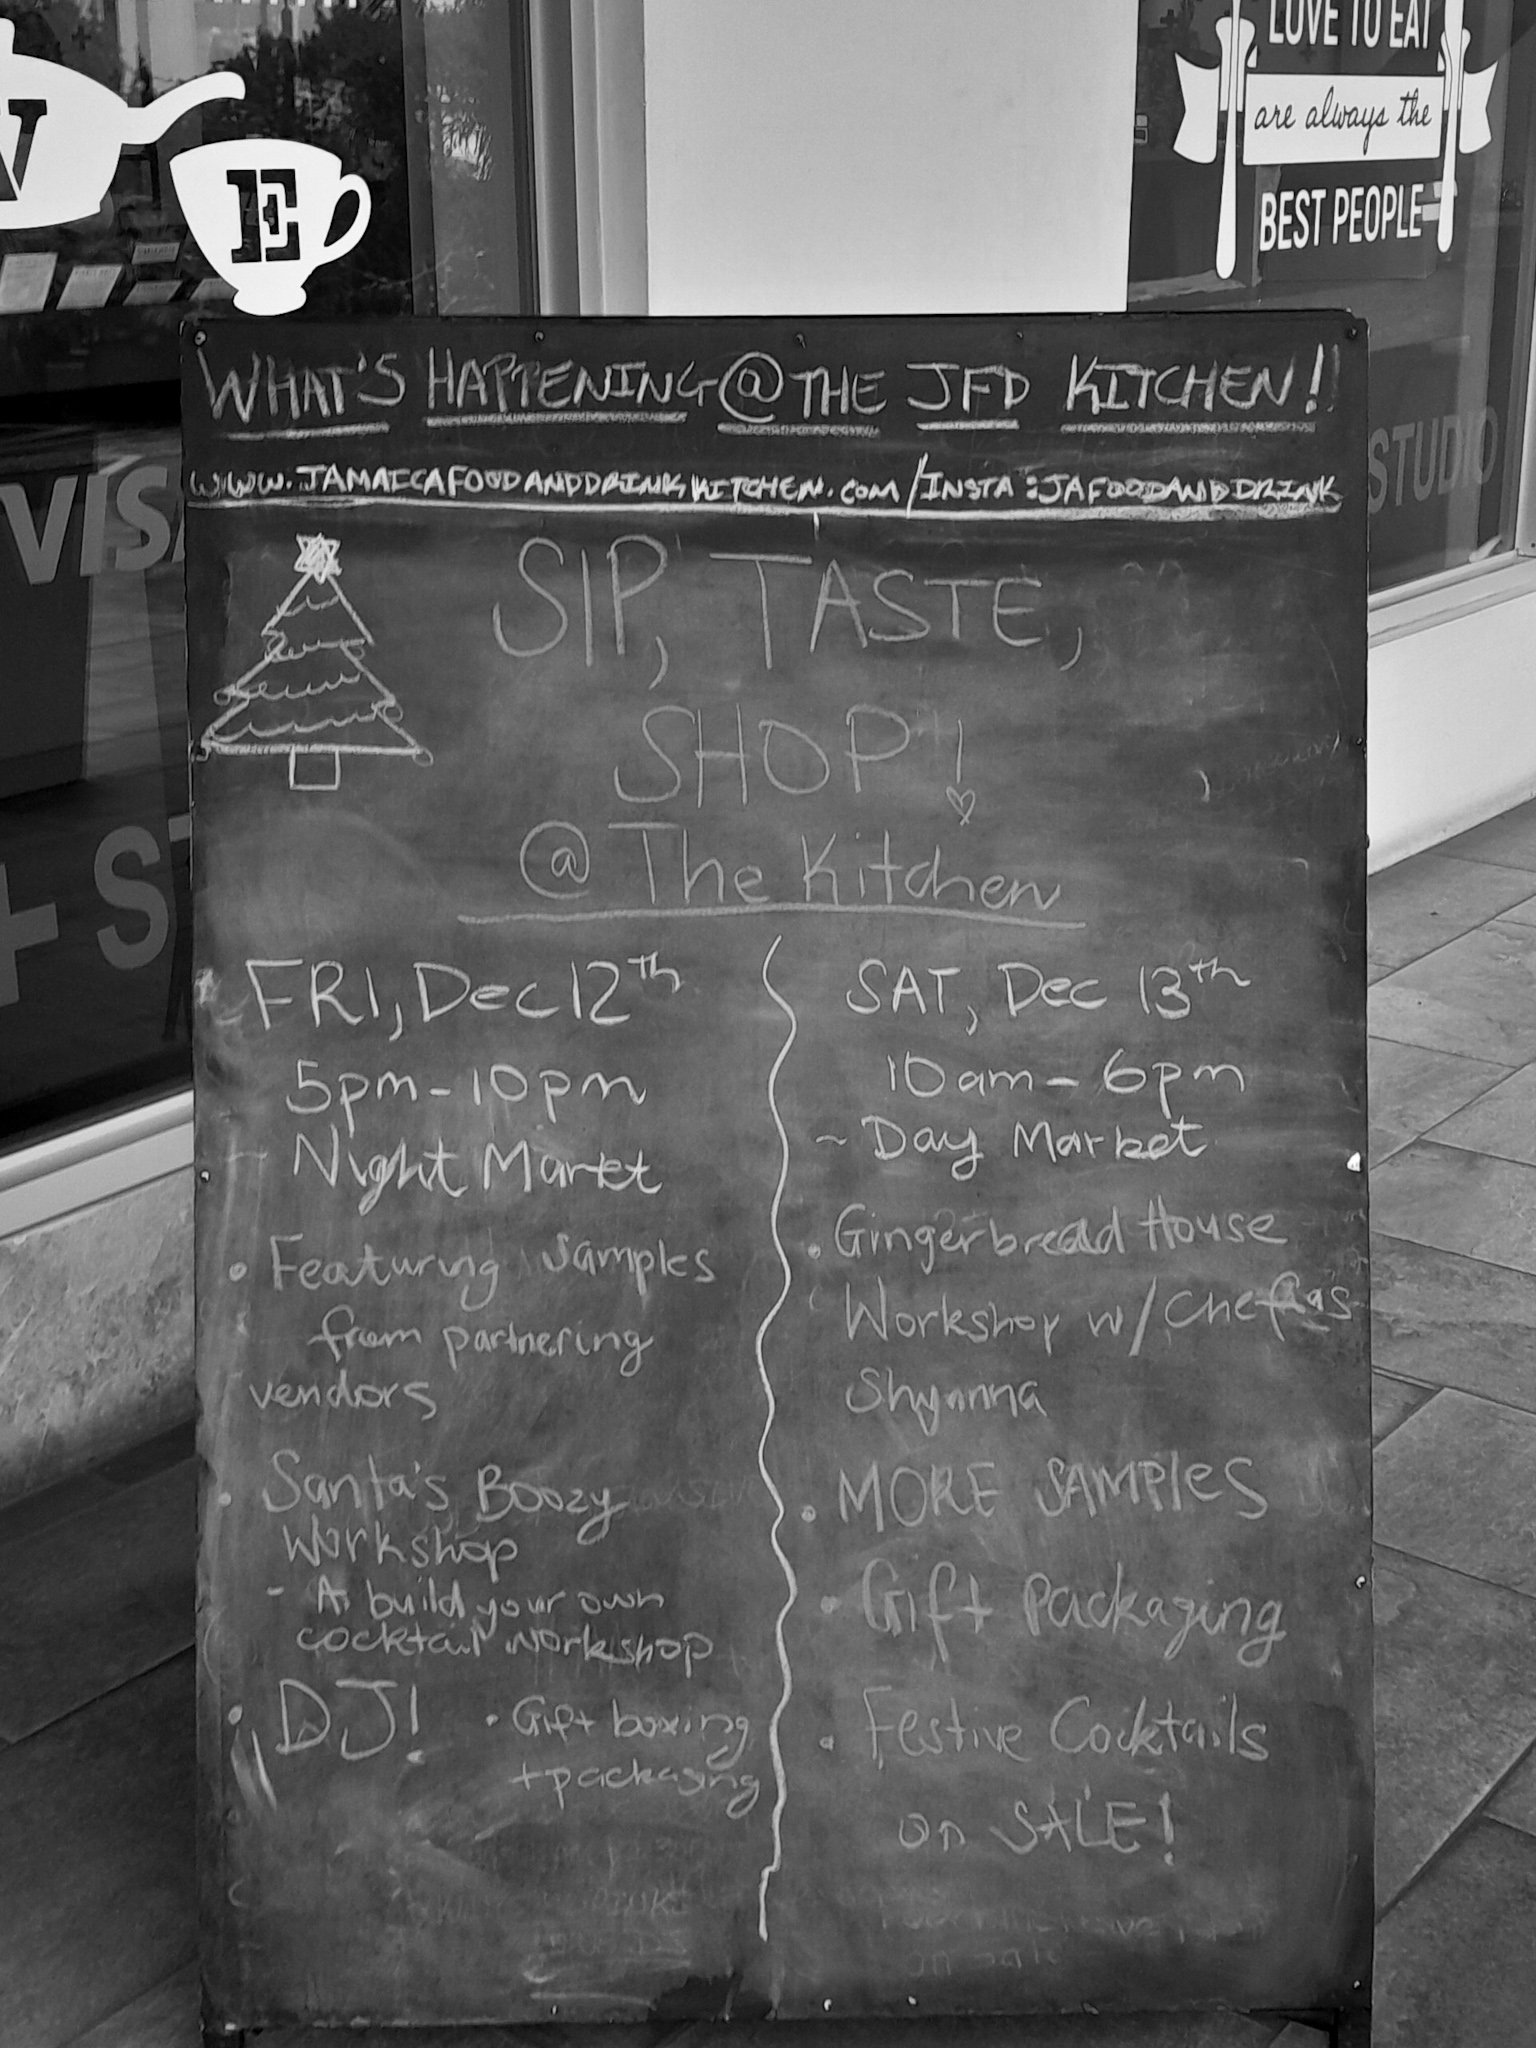 W
E
LOVE TO EAT
are always the
BEST PEOPLE
VISA
STUDIO
+ ST
WHAT'S HAPPENING @ THE JFD KITCHEN!
WWW.JAMAICAFOODANDDRINKKITCHEN.COM/INSTA:JAFOODANDDRINK
SIP, TASTE,
SHOP!
@ The Kitchen
FRI, Dec 12th
5pm - 10pm
Night Market
• Featuring samples
from partnering
vendors
• Santa's Boozy
Workshop
- A build your own
cocktail workshop
• DJ!
• Gift boxing
+ packaging
SAT, Dec 13th
10am - 6pm
~ Day Market
• Gingerbread House
Workshop w/
Shynna
• MORE SAMPLES
• Gift packaging
• Festive Cocktails
on SALE!
on sale